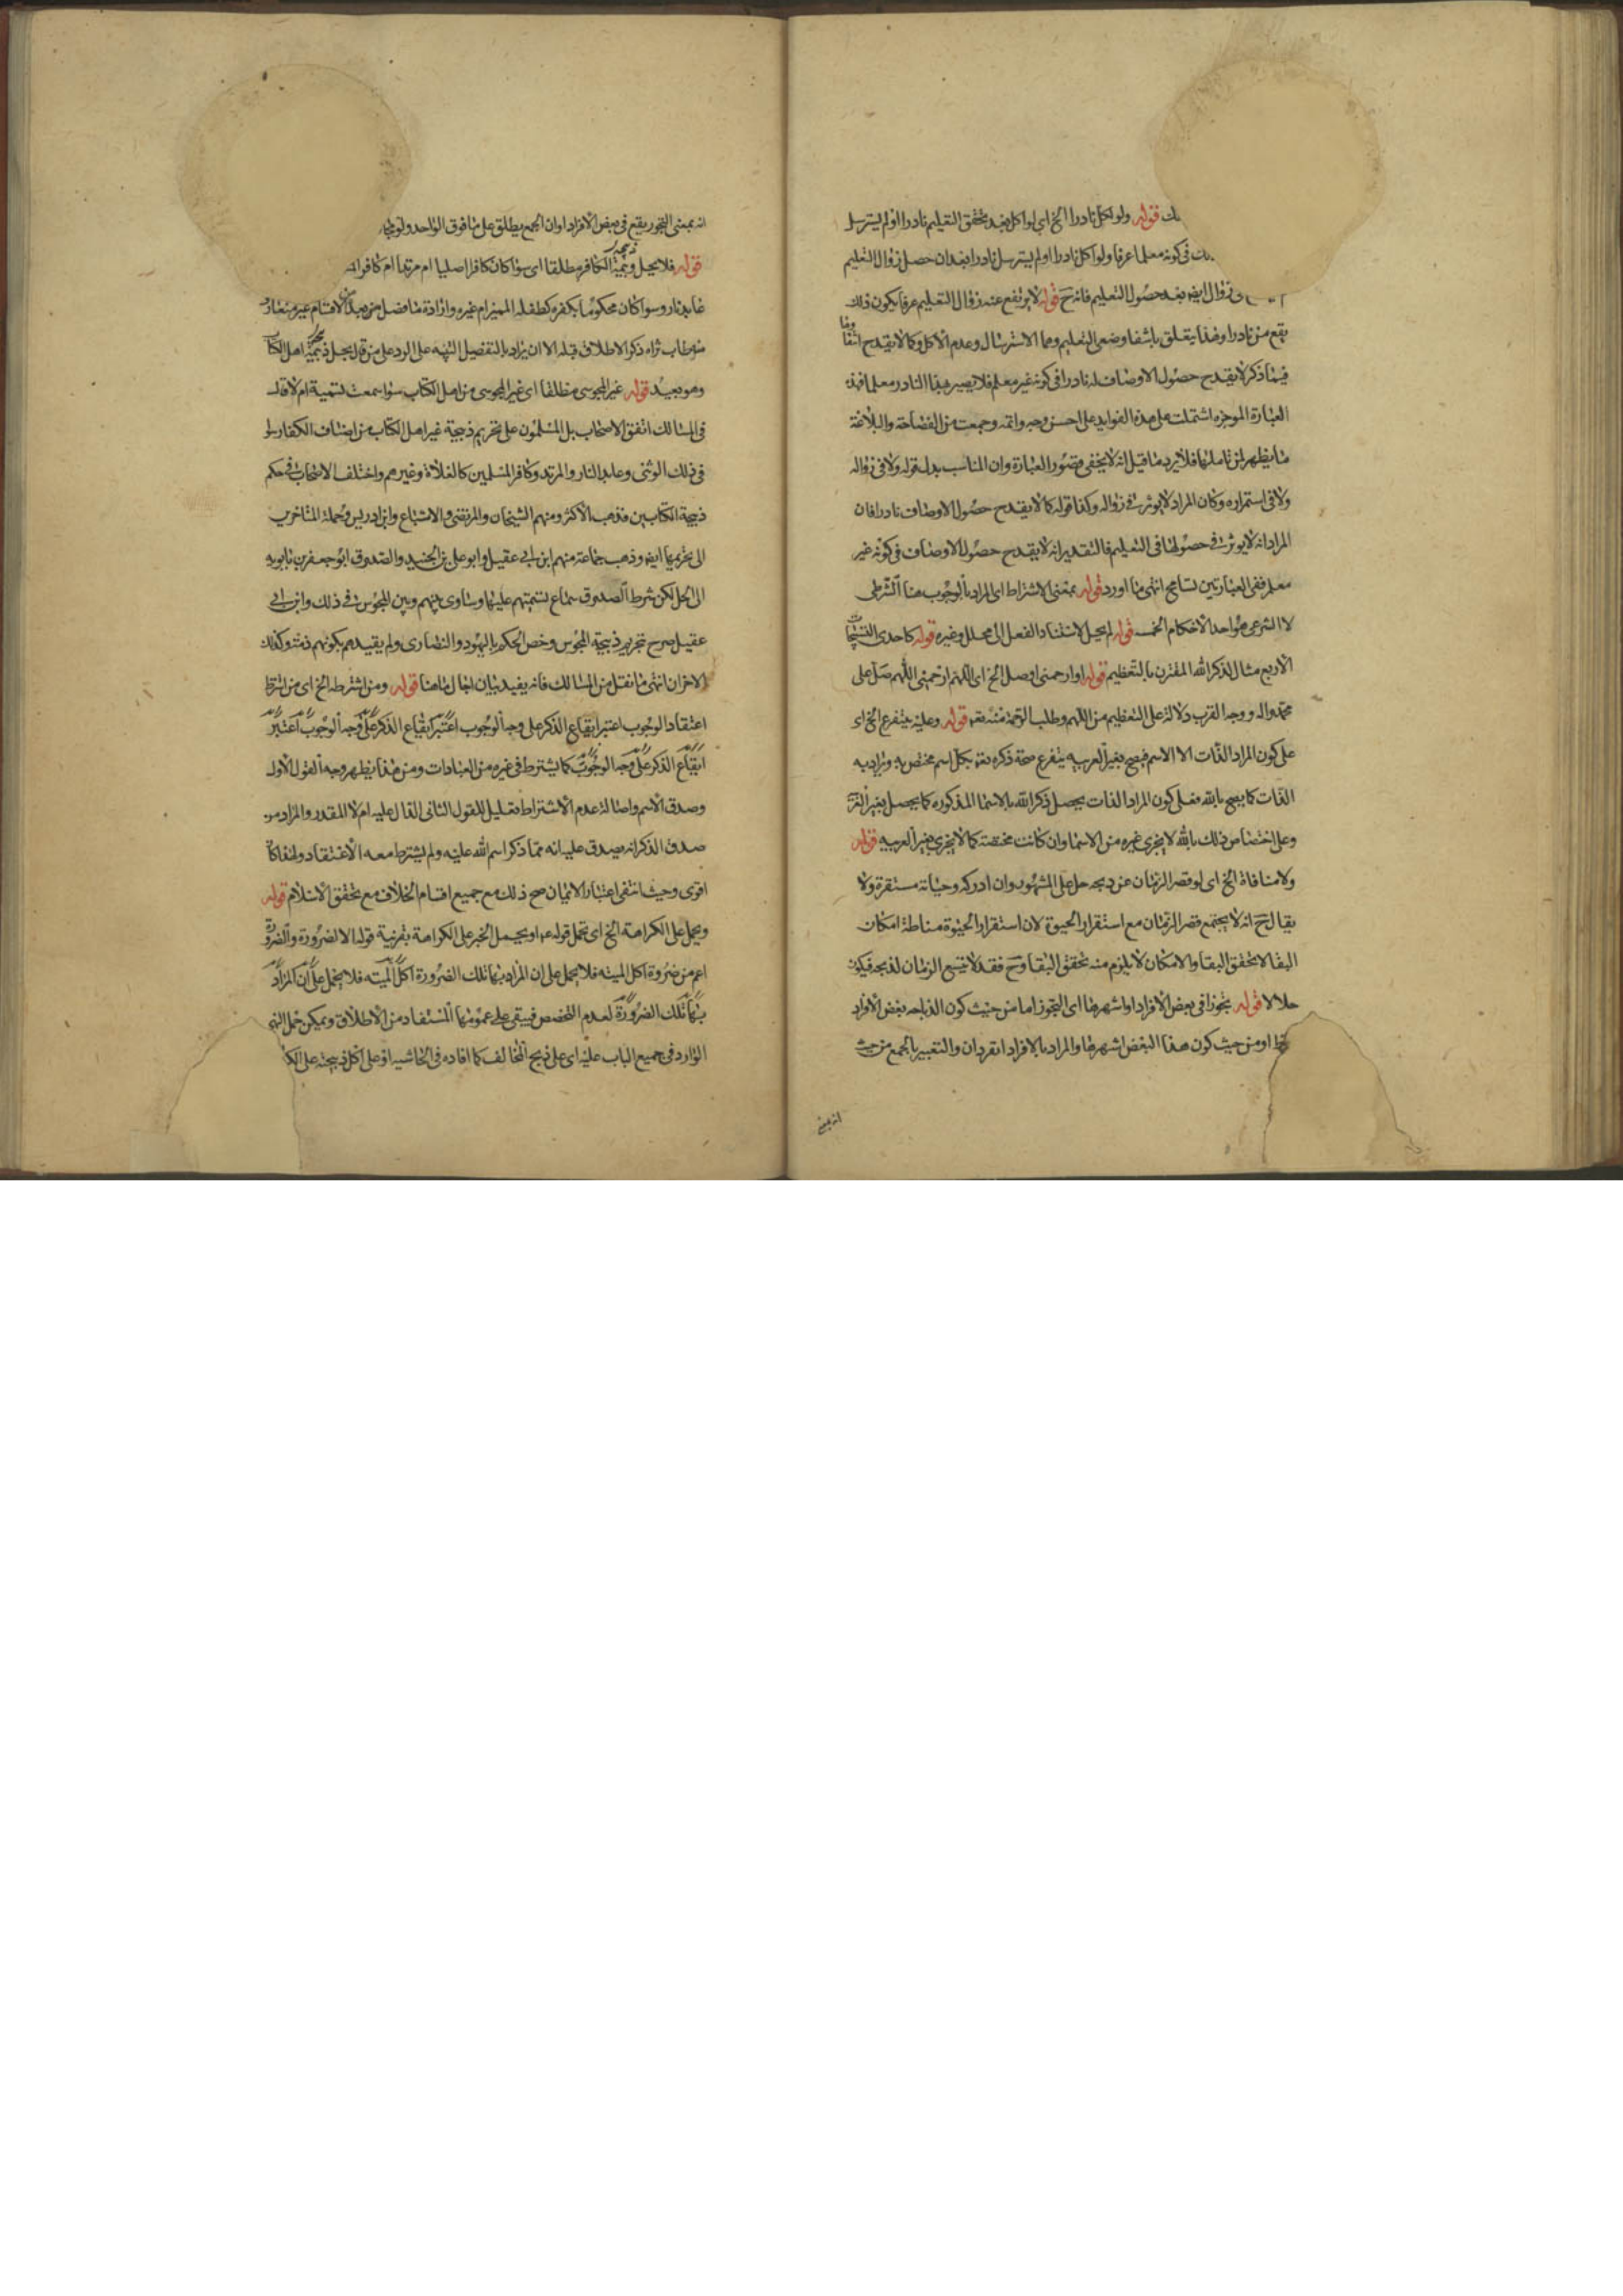 قوله ولو اكل نادرا الخ اي لو اكل بعد تحقق التعليم نادرا او لم يسترسل
في كونه معلما عرفا ولو اكل نادرا او لم يسترسل نادرا بعد ان حصل زوال التعليم
زوال ايضا بعد حصول التعليم فانه ح قوله لا يرتفع عنه زوال التعليم عرفا يكون ذلك
يقع من نادرا وهذا يتعلق باشفا وضعي التعليم وهما الاسترسال وعدم الاكل وكما لا يقدح
فيما ذكر لا يقدح حصول الاوصاف له نادرا في كونه غير معلم فلا يصير بهذا النادر معلما فهذه
العبارة الموجزه اشتملت على هذه الفوايد على احسن وجه واتمه وجمعت من الفصاحة والبلاغة
ما يظهر لمن تاملها فلا يرد ما قيل انه لا يخفى قصور العبارة وان المناسب بدل قوله ولا في زواله
ولا في استمراره وكان المراد لا يوثر في زواله وكذا قوله كما لا يقدح حصول الاوصاف نادرا فان
المراد انه لا يوثر في حصولها في التعليم فالتقدير انه لا يقدح حصول الاوصاف في كونه غير
معلم ففي العبارتين تسامح انتهى ما اورد قوله بمعنى الاشتراط اى المراد بالوجوب هنا الشرطي
لا الشرعي هو احد الاحكام الخمسه قوله لم يحل لاستناد الفعل الى محلل وغيره قوله كاحدى التسبيحات
الاربع مثال لذكر الله المقترن بالتعظيم قوله او ارحمني او صل الخ اى اللهم ارحمني اللهم صل على
محمد واله ووجه القرب دلالة على التعظيم من اللهم وطلب الرحمة منه تعه قوله وعليه يتفرع الخ اى
على كون المراد الذات لا الاسم فيصح بغير العربيه يتفرع صحة ذكره تعه بكل اسم مختص به ويراد به
الذات كما يصح بالله فعلى كون المراد الذات يحصل ذكر الله بالاسما المذكوره كما يحصل بغير
وعلى اختصاص ذلك بالله لا يجزى غيره من الاسما وان كانت مختصة كما لا يجزى بغير العربيه قوله
ولا منافاة الخ اى لو قصر الزمان عن ذبحه حل على المشهور وان ادركه وحياته مستقرة ولا
يقال ح انه لا يجتمع قصر الزمان مع استقرار الحيوة لان استقرار الحيوة مناطة امكان
البقا لا تحقق البقا والامكان لا يلزم منه تحقق البقا وح فقد لا يتسع الزمان لذبحه فيكون
حلالا قوله تجوزا في بعض الافراد او اشهرها اى التجوز اما من حيث كون الذباحه بعض الافراد
او من حيث كون هذا البعض اشهرها والمراد بالافراد الفردان والتعبير بالجمع من حيث
انه بمعنى
انه بمعنى التجوز يقع في بعض الافراد او ان الجمع يطلق على ما فوق الواحد ولو
قوله فلا يحل ذبيحة الكافر مطلقا اى سوا كان كافرا اصليا ام مرتدا ام كافرا
عابد نار وسوا كان محكوما بكفره كطفله المميز ام غيره وارادة ما فضل من هذه الاقسام غير متعارف
ذكر الاطلاق قبله الا ان يراد بالتفصيل التنبيه على الرد على من قال بحل ذبيحة اهل الكتاب
وهو بعيد قوله غير المجوسي مطلقا اى غير المجوسي من اهل الكتاب سوا سمعت تسمية ام لا قال
في المسالك اتفق الاصحاب بل المسلمون على تحريم ذبيحة غير اهل الكتاب من اصناف الكفار
في ذلك الوثني وعابد النار والمرتد وكافر المسلمين كالغلاة وغيرهم واختلف الاصحاب في حكم
ذبيحة الكتابيين فذهب الاكثر ومنهم الشيخان والمرتضى والاتباع وابن ادريس وجملة المتاخرين
الى تحريمها ايضا وذهب جماعة منهم ابن ابي عقيل وابو على بن الجنيد والصدوق ابو جعفر بن بابويه
الى الحل لكن شرط الصدوق سماع تسميتهم عليها وساوى بينهم وبين المجوس في ذلك وابن ابي
عقيل صرح تحريم ذبيحة المجوس وخص الحكم باليهود والنصارى ولم يقيدهم بكونهم ذمة وكذلك
الاخران انتهى ما نقل من المسالك فانه يفيد بيان اجمال ما هنا قوله ومن اشترطه الخ اى من اشترط
اعتقاد الوجوب اعتبر ايقاع الذكر على وجه الوجوب اعتبر ايقاع الذكر على وجه الوجوب اعتبر
ايقاع الذكر على وجه الوجوب كما يشترط في غيره من العبادات ومن هذا يظهر وجه القول الاول
وصدق الاسم واصالة عدم الاشتراط تعليل للقول الثاني الدال عليه ام لا المقدر والمراد من
صدق الذكر انه يصدق عليه انه مما ذكر اسم الله عليه ولم يشترط معه الاعتقاد ولهذا كان
اقوى وحيث انتفى اعتبار الايمان صح ذلك مع جميع اقسام الخلاف مع تحقق الاسلام قوله
ويحمل على الكراهة الخ اى يحمل قوله عه او يحمل الخبر على الكراهة بقرينة قوله الا لضرورة والضرورة
اعم من ضرورة اكل الميته فلا يحمل على ان المراد بها تلك الضرورة اكل الميته فلا يحمل على ان المراد
بها تلك الضرورة لعدم التخصص فيبقى على عمومها المستفاد من الاطلاق ويمكن حمل النهي
الوارد في جميع الباب عليه اى على ذبح المخالف كما افاده في الحاشيه او على اكل ذبيحته على